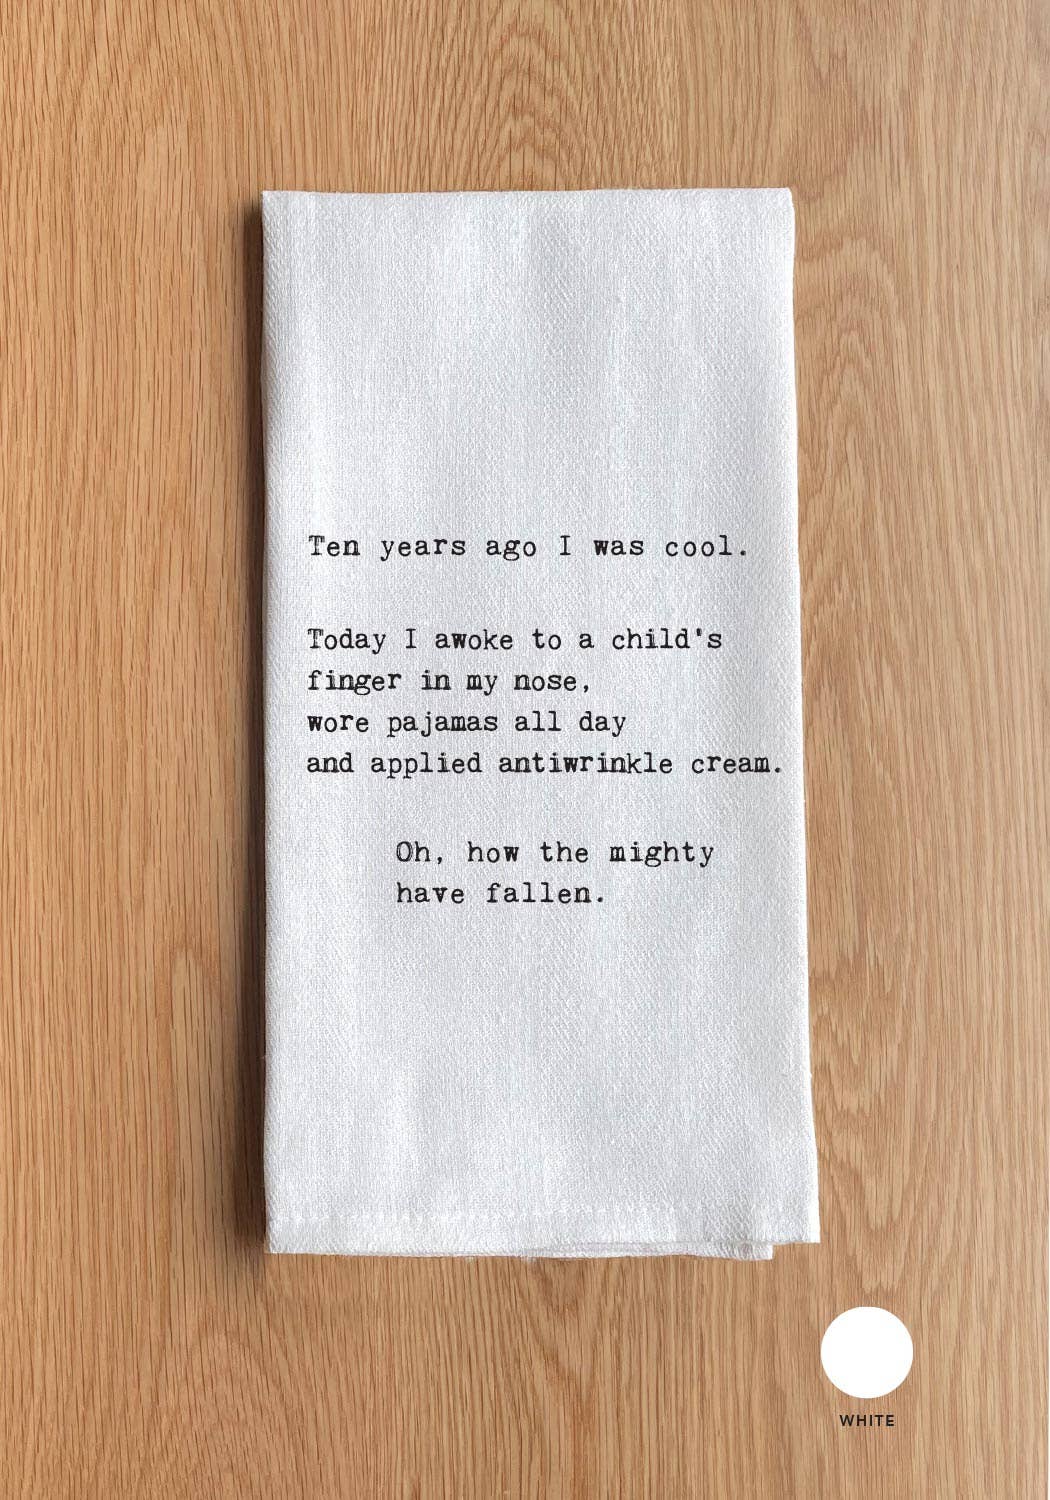 Ten years ago I was cool.
Today I awoke to a child's
finger in my nose,
wore pajamas all day
and applied antiwrinkle cream.
Oh, how the mighty
have fallen.
WHITE